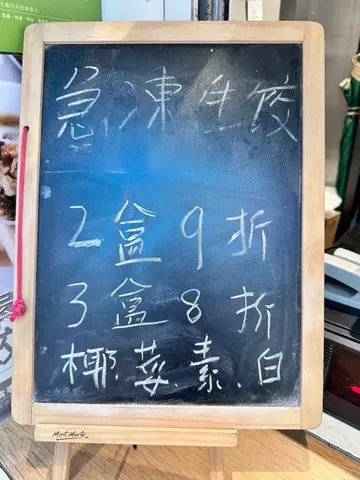 急凍生餃
2盒9折
3盒8折
椰.莓.素.白
Mont Marte